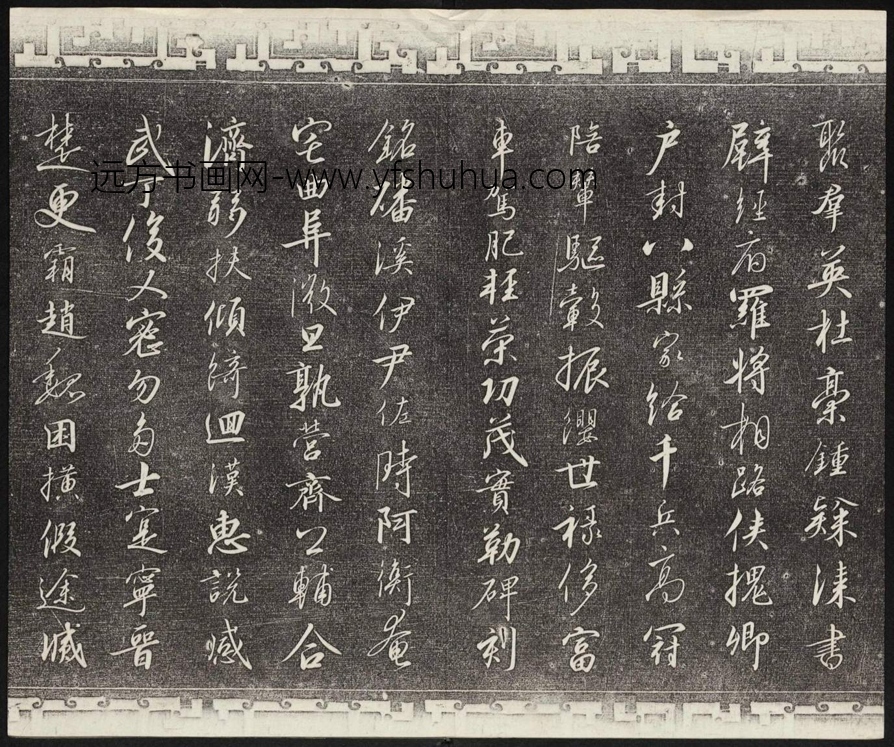 聚羣英杜稾鍾隸漆書
壁經府羅將相路俠槐卿
户封八縣家給千兵高冠
陪輦驅轂振纓世禄侈富
車駕肥輕策功茂實勒碑刻
銘磻溪伊尹佐時阿衡奄
宅曲阜微旦孰營齊公輔合
濟弱扶傾綺迴漢惠説感
武丁俊乂密勿多士寔寧晉
楚更霸趙魏困横假途滅
远方书画网-www.yfshuhua.com